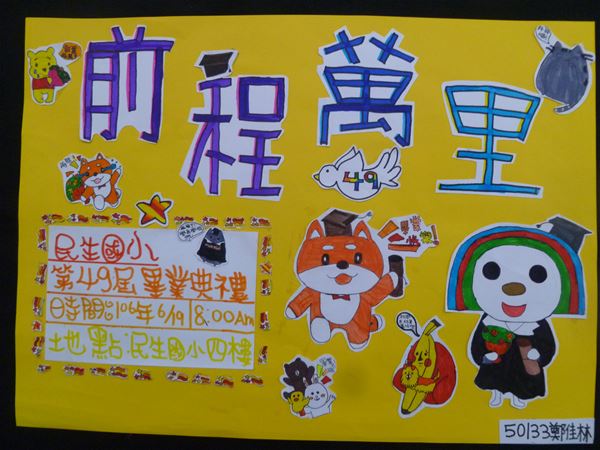 前程萬里
49
民生國小
第49屆畢業典禮
時間:106年6/19 8:00Am
地點:民生國小四樓
50133鄭隹林